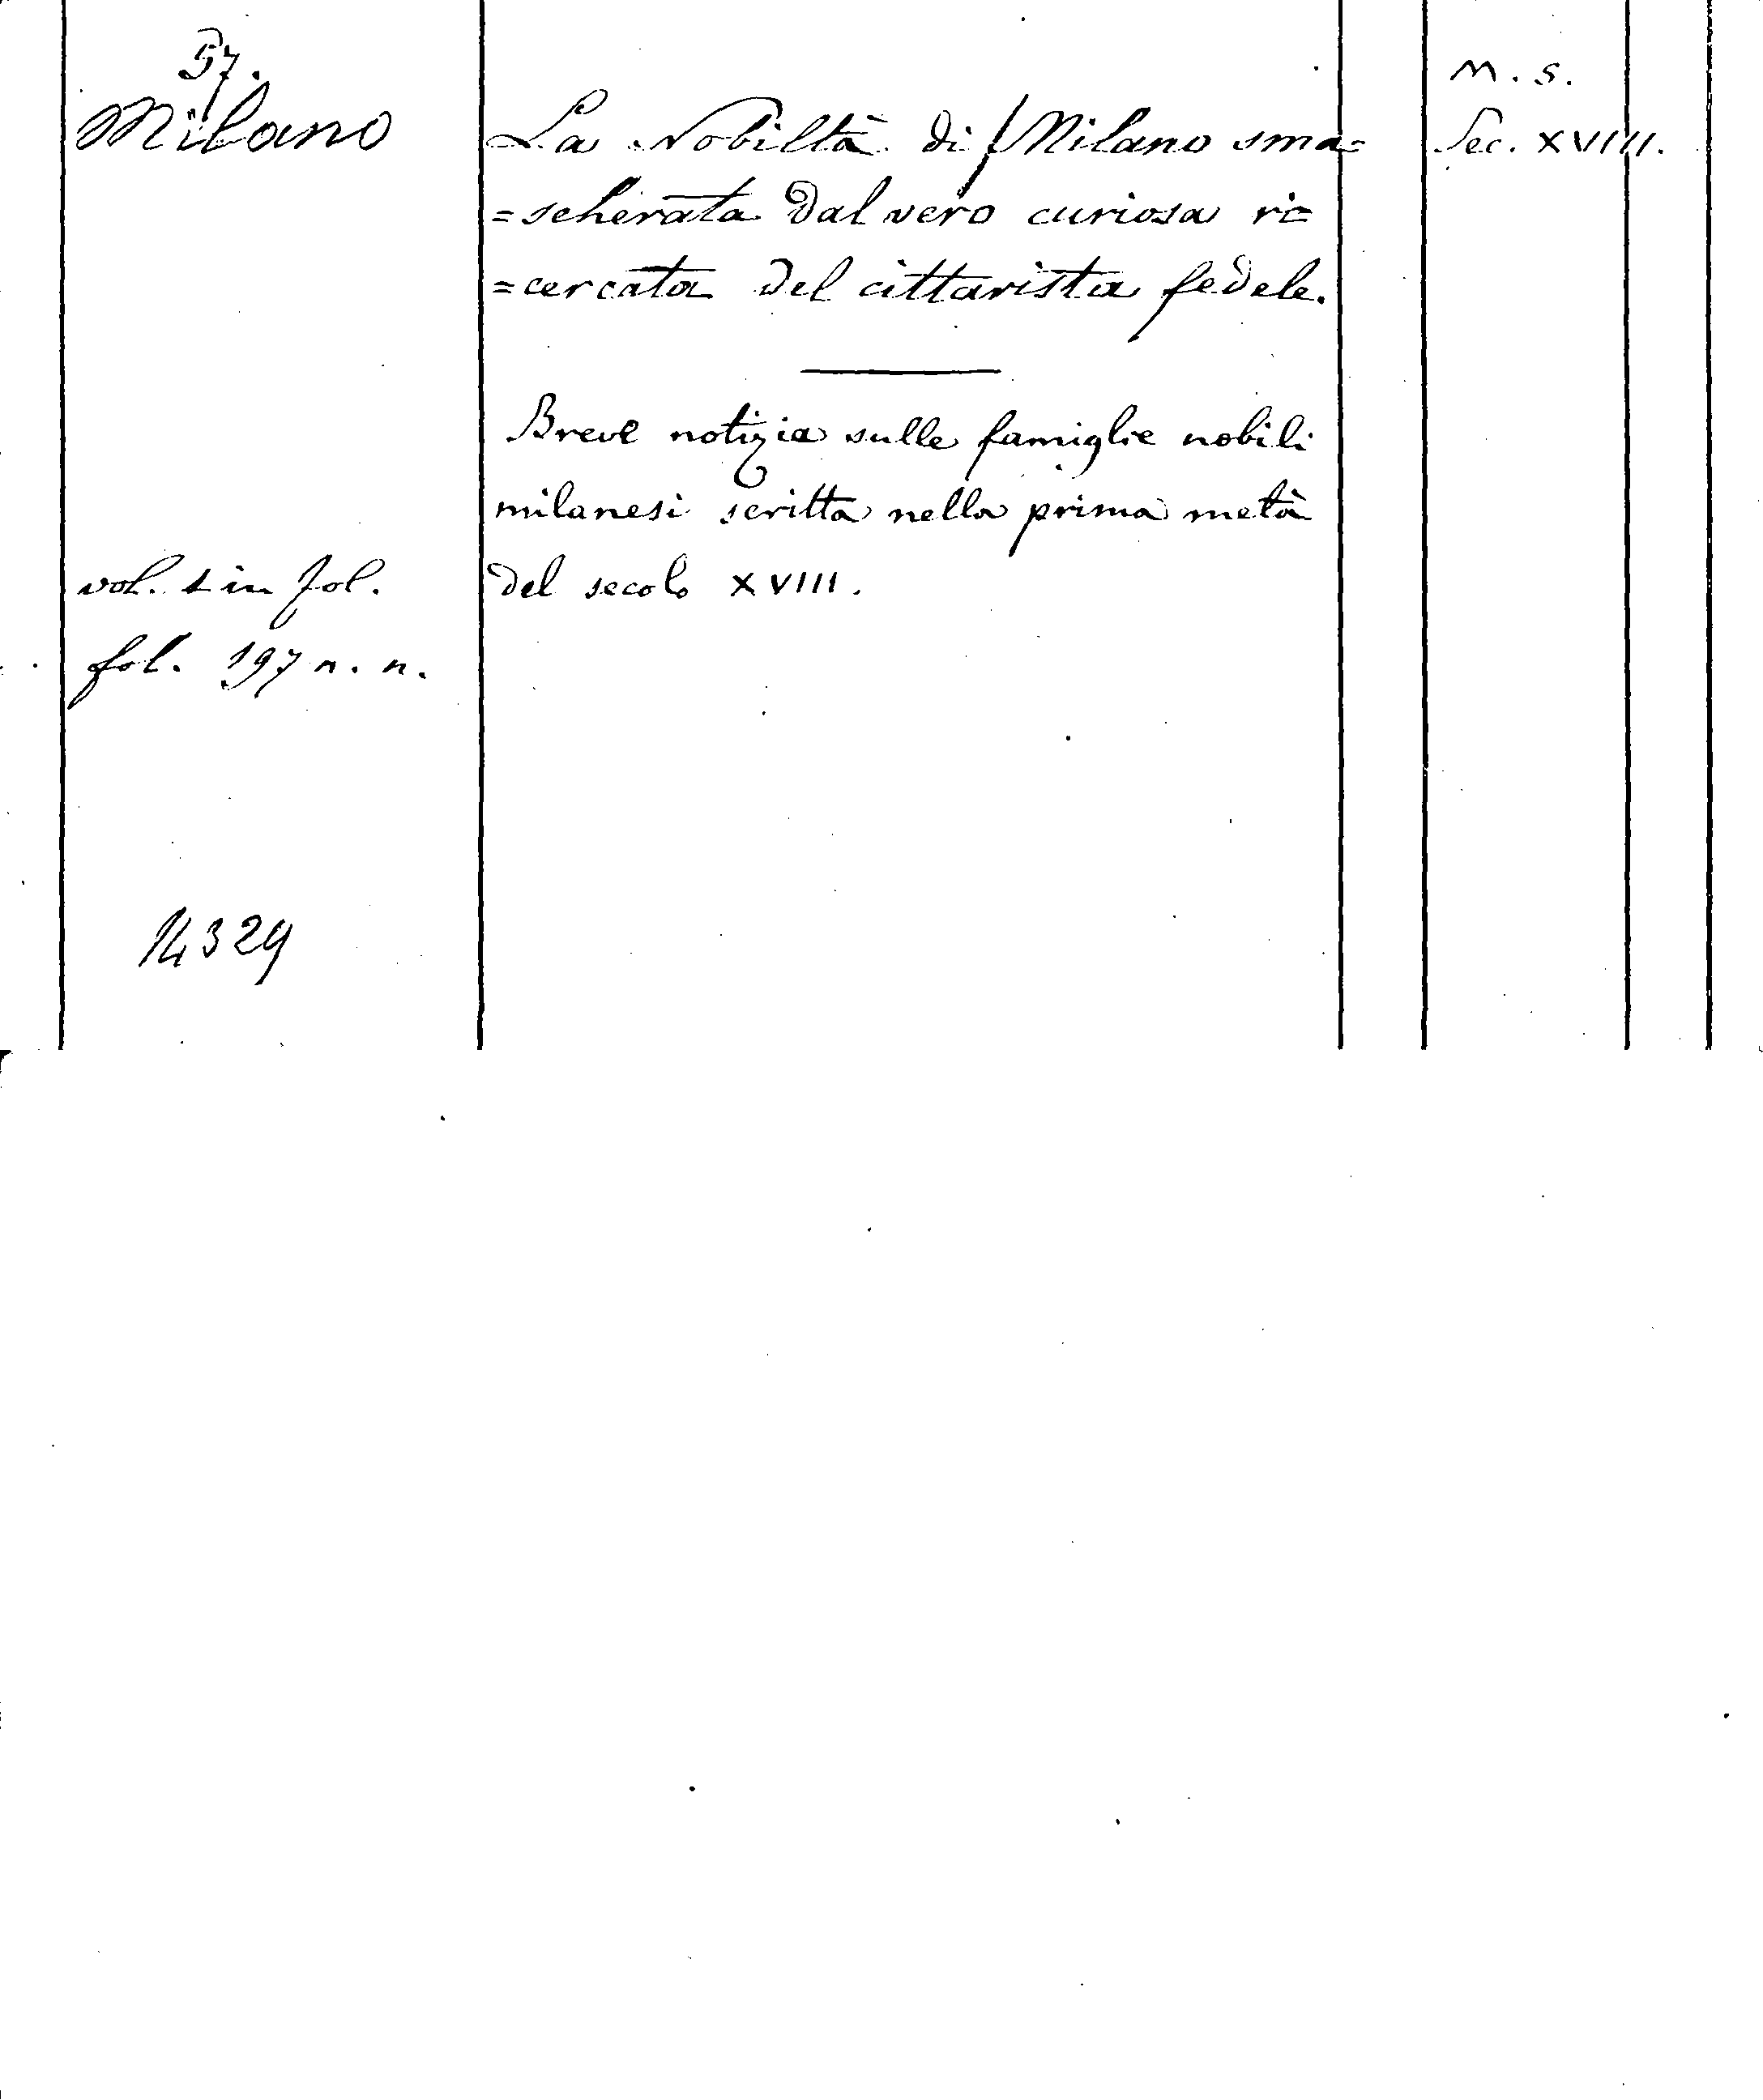 57.
Milano
La Nobiltà di Milano sma=
=scherata dal vero curiosa ri=
=cercata del cittarista fedele.
Breve notizia sulle famiglie nobili
milanesi scritta nella prima metà
del secolo XVIII.
vol. 1 in fol.
fol. 197 n. n.
14329
M. S.
Sec. XVIII.